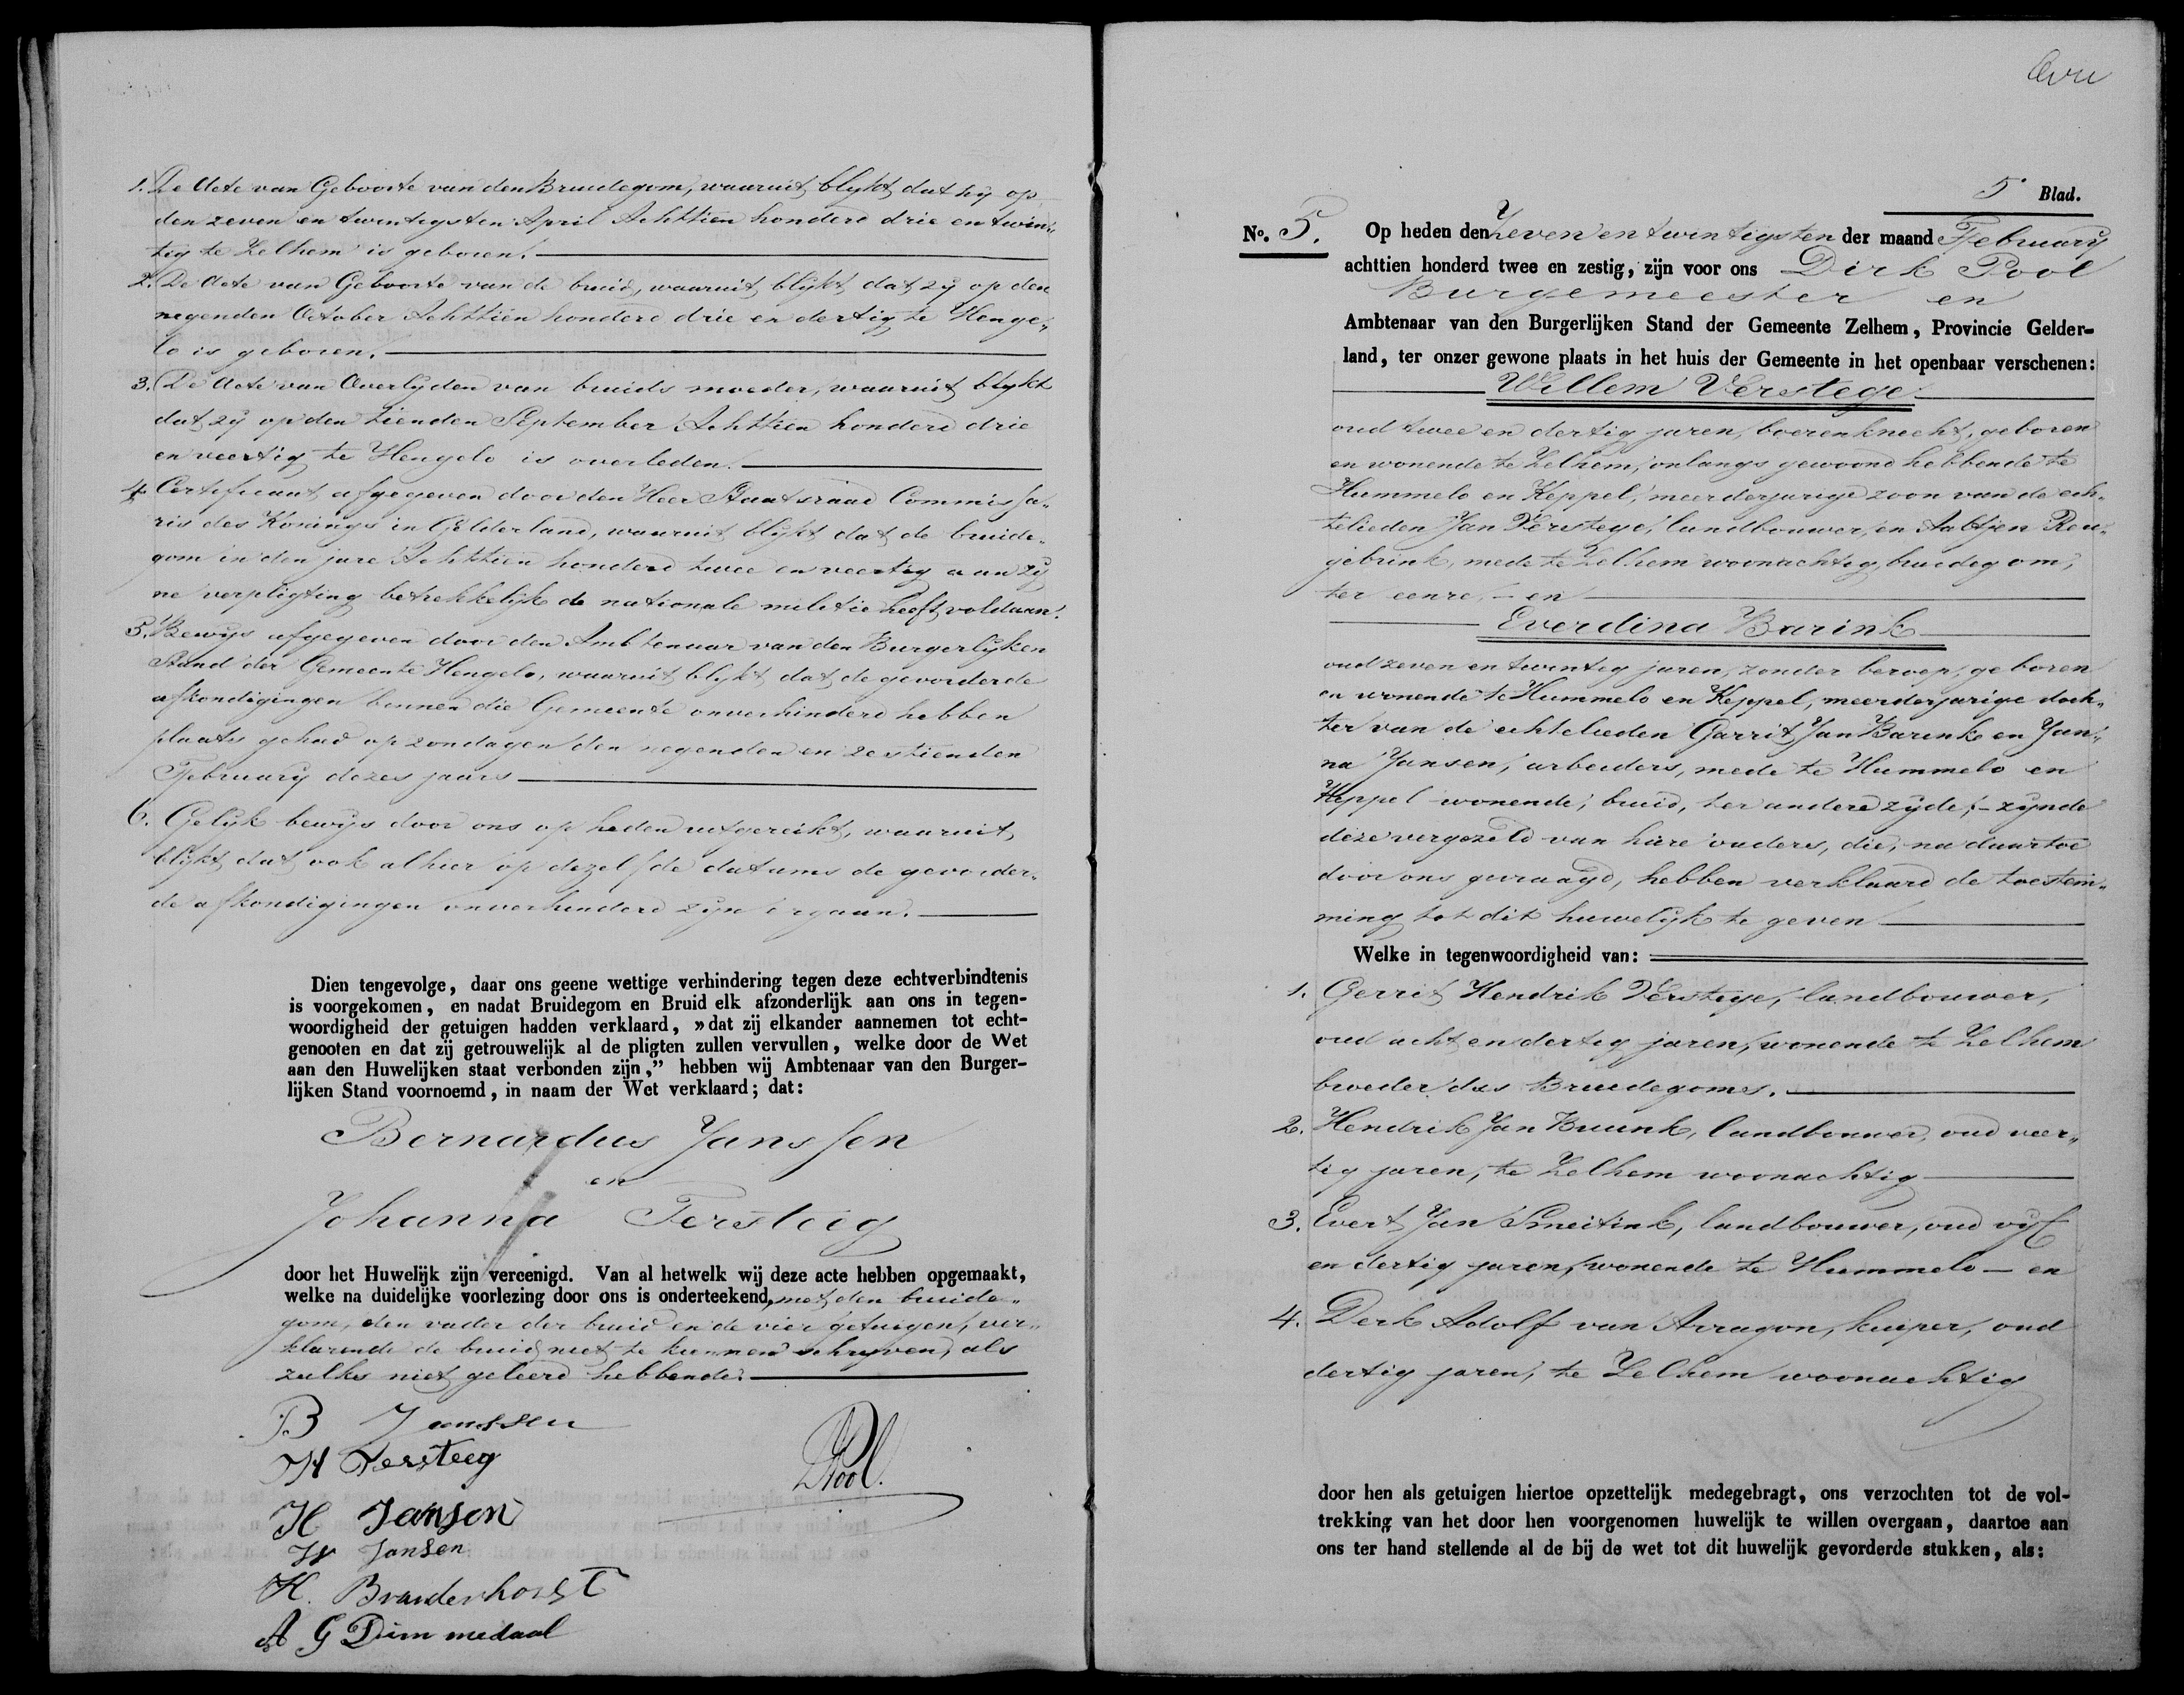 1. De Acte van Geboorte van den Bruidegom, waaruit blykt dat hy op
den zeven en twintigsten April Achttien honderd drie en twin„
tig te Zelhem is geboren.
2. De Acte van Geboorte van de bruid, waaruit blykt dat zy op den
negenden October Achttien honderd drie en dertig te Henge„
lo is geboren.
3. De Acte van Overlyden van bruids moeder, waaruit blykt
dat zy op den tienden September Achttien honderd drie
en veertig te Hengelo is overleden.
4. Certificaat afgegeven door den Heer Staatsraad Commissa„
ris des Konings in Gelderland, waaruit blykt dat de bruide„
gom in den jare Achttien honderd twee en veertig aan zy„
ne verpligting betrekkelyk de nationale militie heeft voldaan.
5. Bewys afgegeven door den Ambtenaar van den Burgerlyken
Stand der Gemeente Hengelo, waaruit blykt dat de gevorderde
afkondigingen binnen die Gemeente onverhinderd hebben
plaats gehad op zondagen den negenden en zestienden
February dezes jaars
6. Gelyk bewys door ons op heden uitgereikt, waaruit
blykt dat ook alhier op dezelfde datums de gevorder„
de afkondigingen onverhinderd zyn gegaan.
Dien tengevolge, daar ons geene wettige verhindering tegen deze echtverbindtenis
is voorgekomen, en nadat Bruidegom en Bruid elk afzonderlijk aan ons in tegen-
woordigheid der getuigen hadden verklaard, »dat zij elkander aannemen tot echt-
genooten en dat zij getrouwelijk al de pligten zullen vervullen, welke door de Wet
aan den Huwelijken staat verbonden zijn,” hebben wij Ambtenaar van den Burger-
lijken Stand voornoemd, in naam der Wet verklaard; dat:
Bernardus Janssen
en
Johanna Tersteeg
door het Huwelijk zijn vereenigd. Van al hetwelk wij deze acte hebben opgemaakt,
welke na duidelijke voorlezing door ons is onderteekend, met den bruide„
gom, den vader der bruid en de vier getuigen, ver„
klarende de bruid niet te kunnen schryven, als
zulks niet geleerd hebbende.
B Janssen
H Tersteeg
DPool.
H Jansen
W Jansen
H. Branderhorst
A G Dimmedaal
5e Blad.
No. 5. Op heden den Zeven en twintigsten der maand February
achttien honderd twee en zestig, zijn voor ons Dirk Pool
Burgemeester en
Ambtenaar van den Burgerlijken Stand der Gemeente Zelhem, Provincie Gelder-
land, ter onzer gewone plaats in het huis der Gemeente in het openbaar verschenen:
Willem Verstege
oud twee en dertig jaren, boerenknecht, geboren
en wonende te Zelhem, onlangs gewoond hebbende te
Hummelo en Keppel, meerderjarige zoon van de ech„
telieden Jan Verstege, landbouwer, en Aaltjen Reu„
gebrink, mede te Zelhem woonachtig, bruidegom,
ter eenre, – en
Everdina Barink
oud zeven en twintig jaren, zonder beroep, geboren
en wonende te Hummelo en Keppel, meerderjarige doch„
ter van de echtelieden Garrit Jan Barink en Jan„
na Jansen, arbeiders, mede te Hummelo en
Keppel wonende, bruid, ter andere zyde; – zynde
deze vergezeld van hare ouders, die, na daartoe
door ons gevraagd, hebben verklaard de toestem„
ming tot dit huwelyk te geven
Welke in tegenwoordigheid van:
1. Gerrit Hendrik Verstege, landbouwer,
oud acht en dertig jaren, wonende te Zelhem
broeder des Bruidegoms.
2. Hendrik Jan Buunk, landbouwer, oud veer„
tig jaren, te Zelhem woonachtig
3. Evert Jan Smeitink, landbouwer, oud vyf
en dertig jaren, wonende te Hummelo – en
4. Derk Adolf van Arragon, kuiper, oud
dertig jaren, te Zelhem woonachtig
door hen als getuigen hiertoe opzettelijk medegebragt, ons verzochten tot de vol-
trekking van het door hen voorgenomen huwelijk te willen overgaan, daartoe aan
ons ter hand stellende al de bij de wet tot dit huwelijk gevorderde stukken, als: